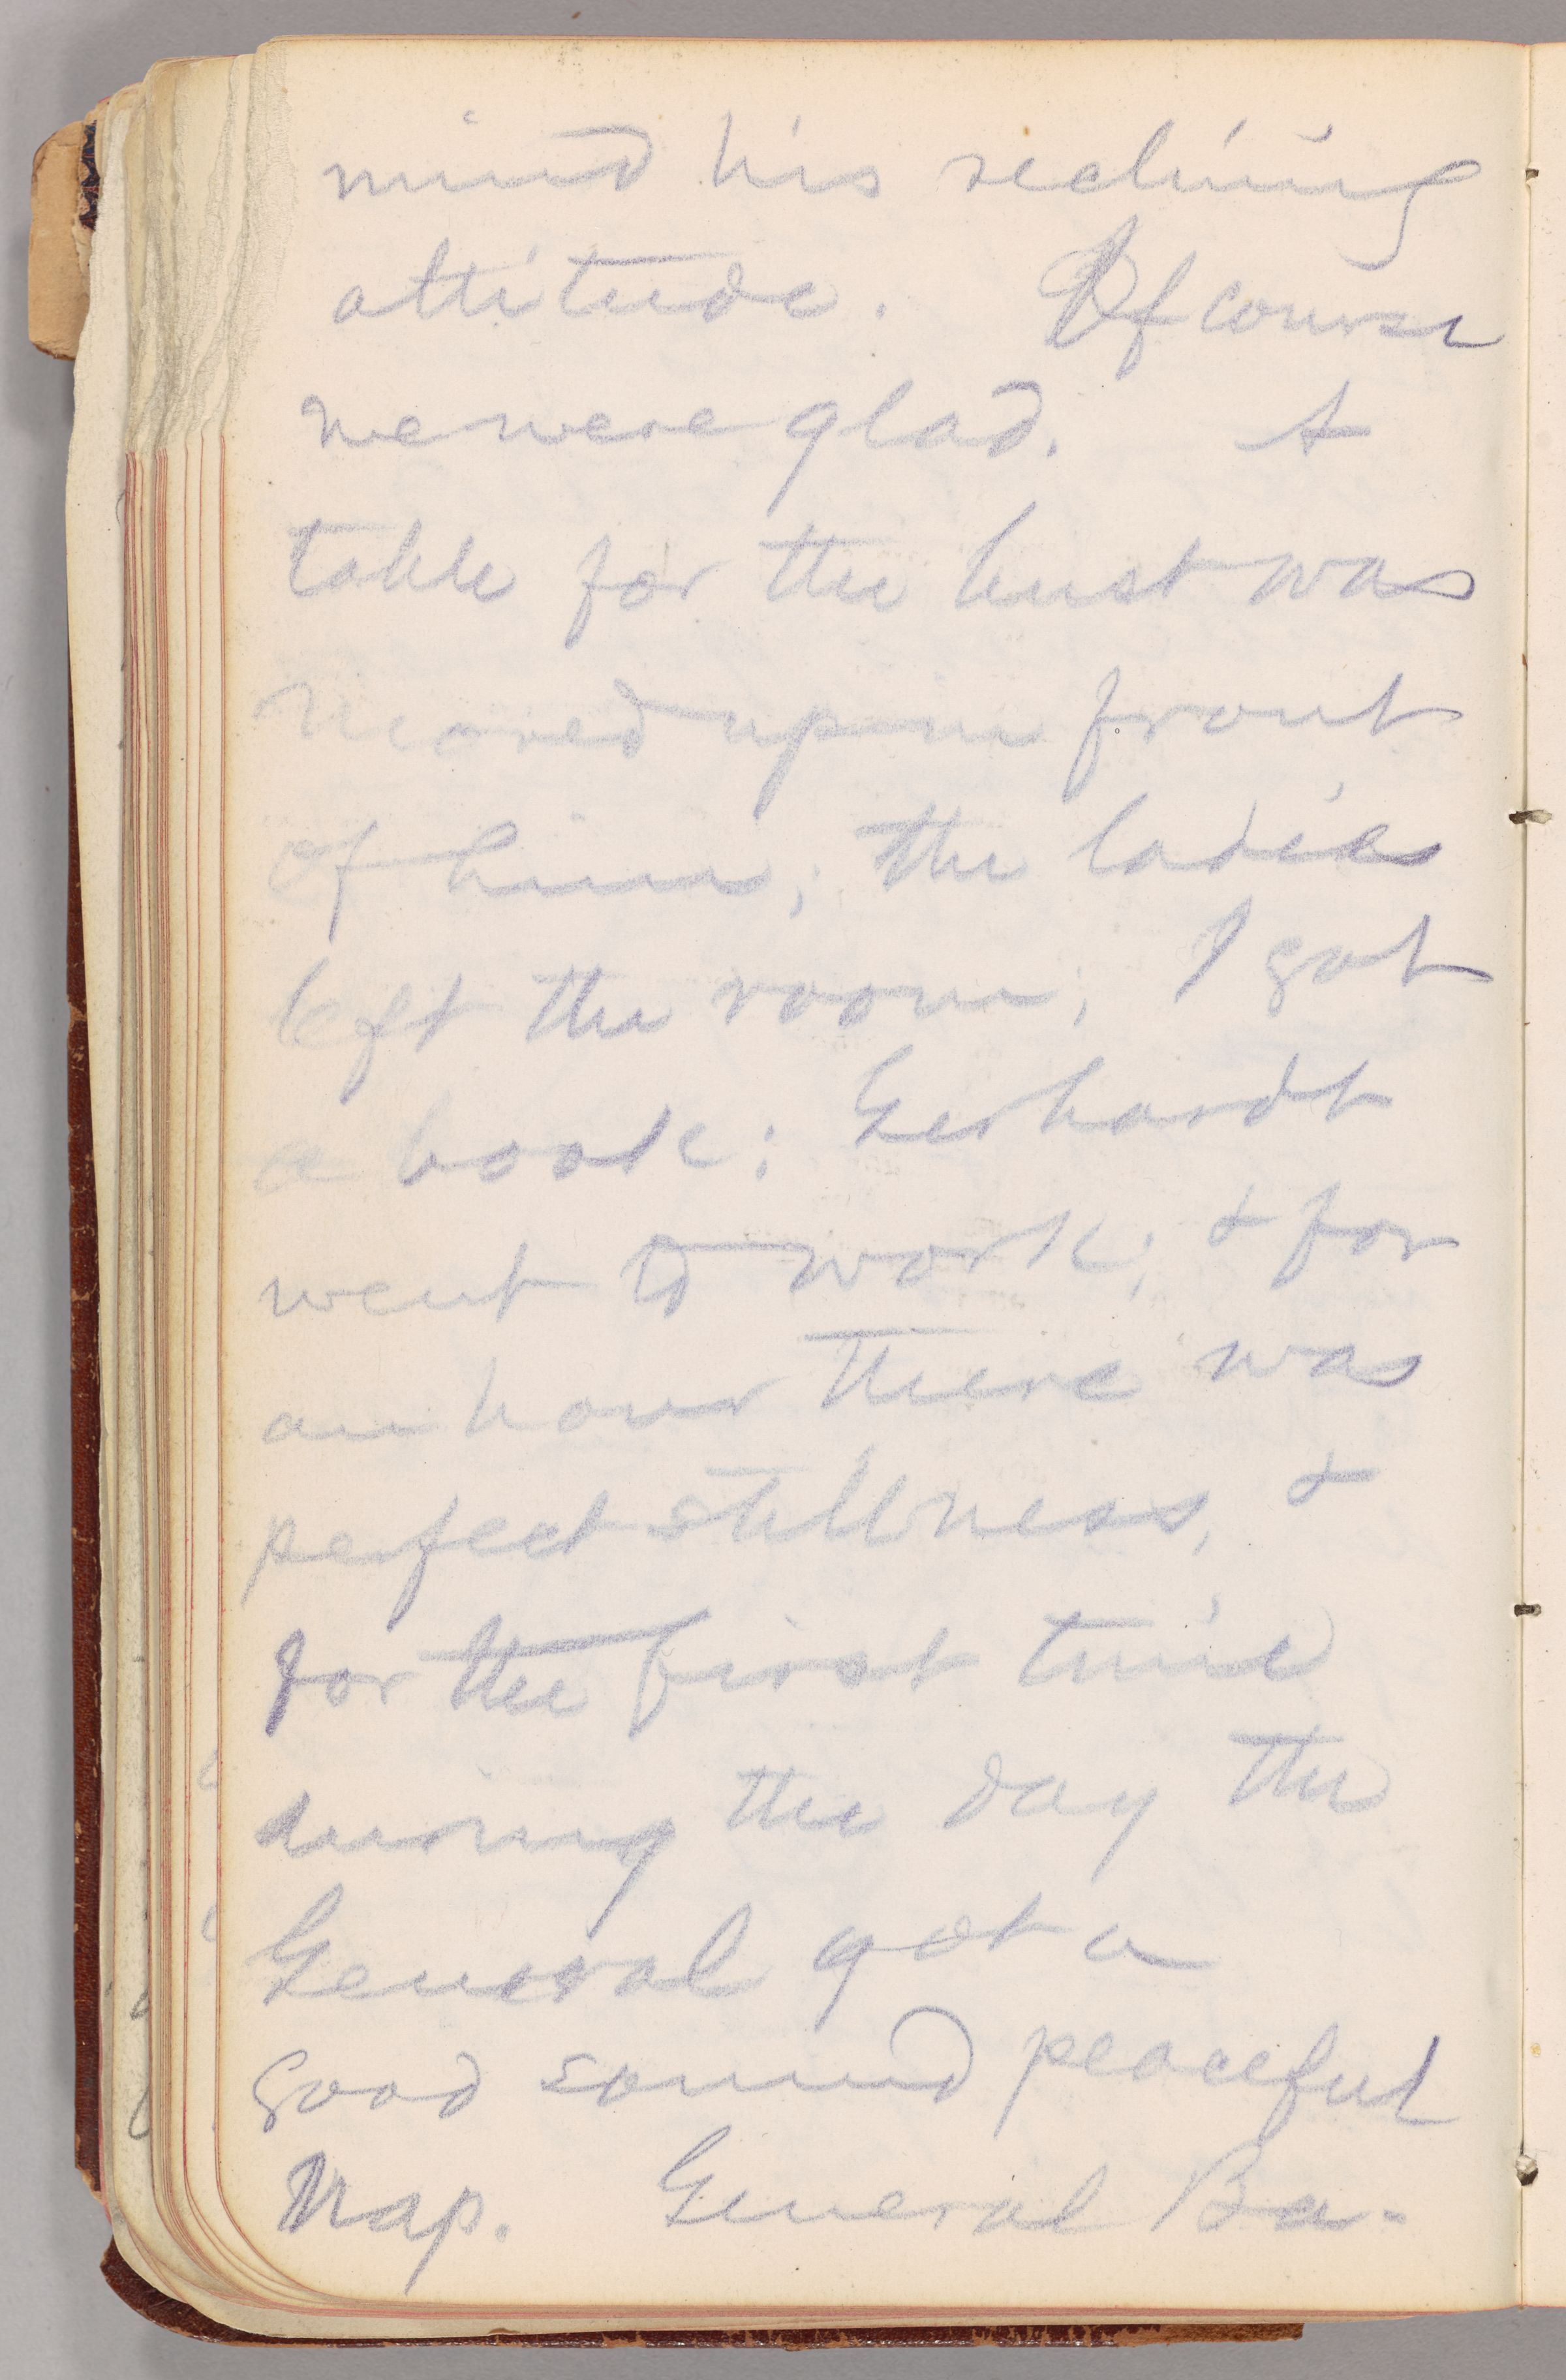 mind his reclining
attitude. Of course
we were glad. A
table for the bust was
moved up in front
of him; the ladies
left the room; I got
a book; Gerhardt
went to work; & for
an hour there was
perfect stillness, &
for the first time
during the day the
General got a
good sound peaceful
nap. General Ba-